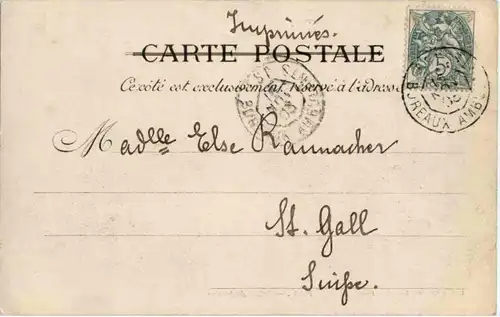 Imprimés.
CARTE POSTALE
Ce côté est exclusivement réservé à l'adresse
Madlle Else Raunacher
St. Gall
Suiße.
BUREAUX AMB